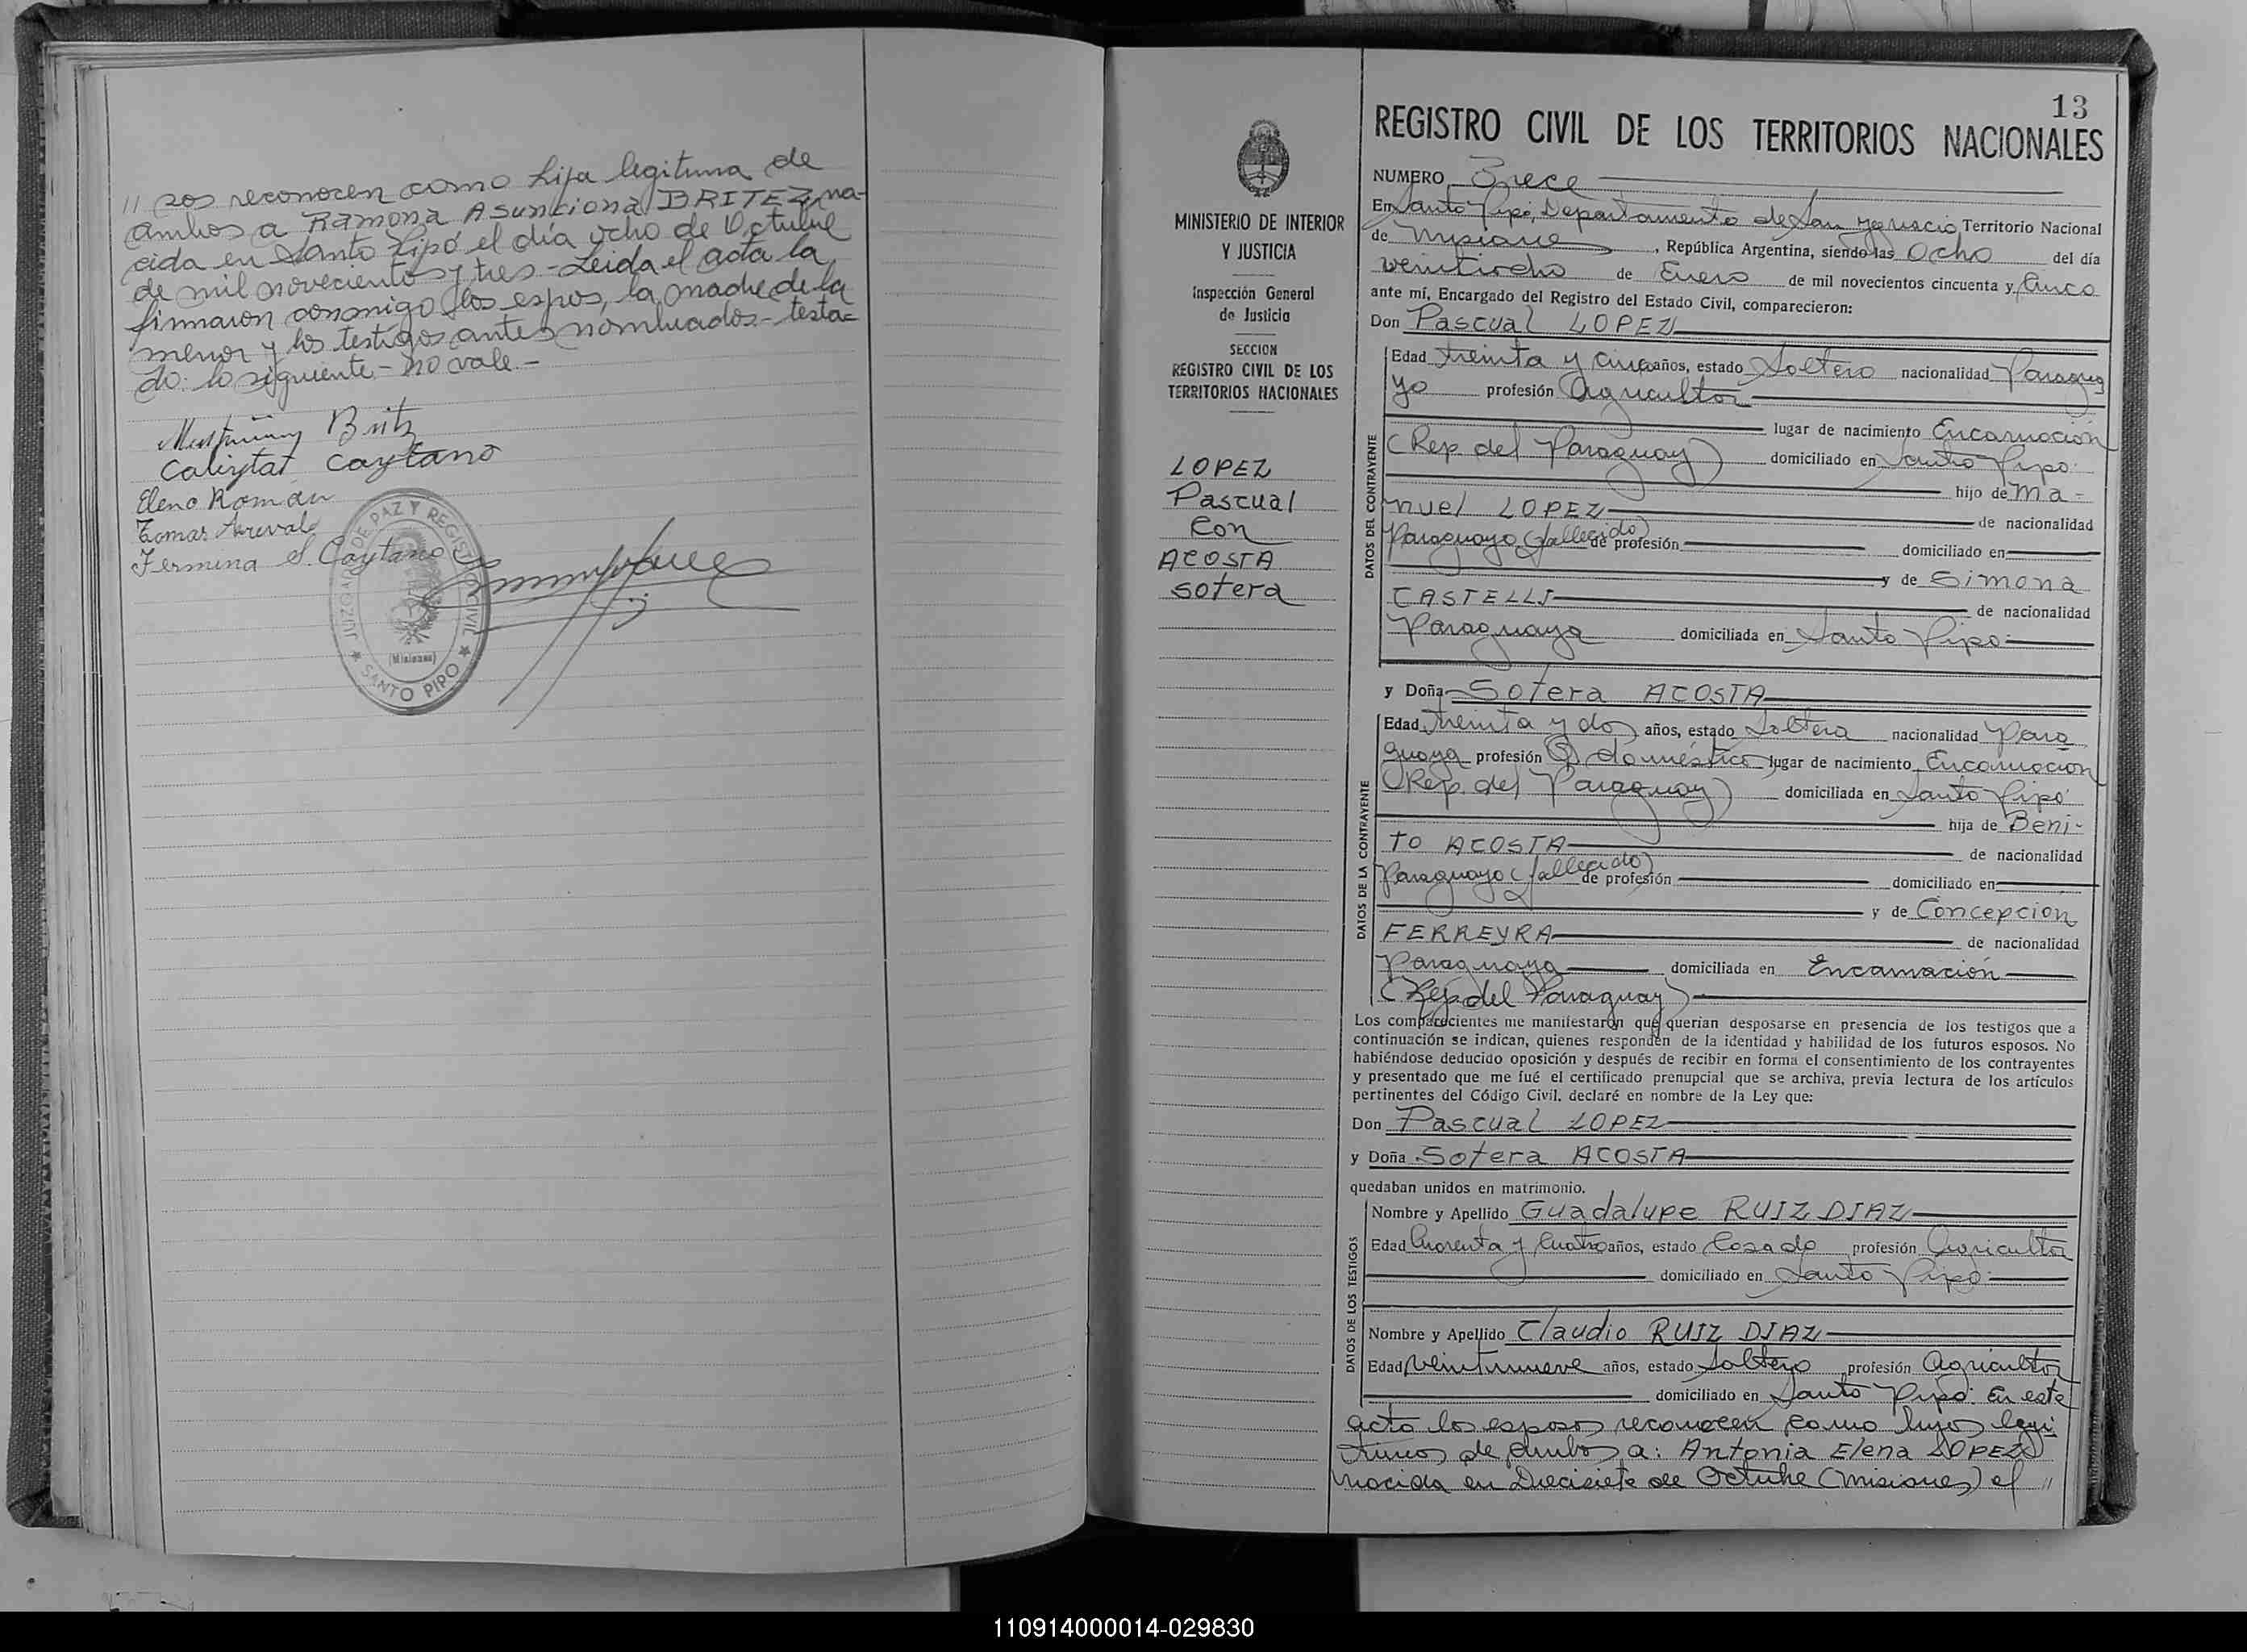 // sos reconocen como hija legitima de
ambos a Ramona Asunciona BRITEZ na-
cida en Santo Pipó el día ocho de Octubre
de mil noveciento y tres - Leida el acta la
firmaron conmigo los espos, la madre de la
menor y los testigos antes nombrados - testa-
do: lo siguiente - no vale. -
Britz
Calixtat Caytano
Eleno Román
Tomas Arevalo
Fermina S. Caytano
JUZGADO DE PAZ Y REGISTRO CIVIL
(Misiones)
SANTO PIPO
13
MINISTERIO DE INTERIOR
Y JUSTICIA
Inspección General
de Justicia
SECCION
REGISTRO CIVIL DE LOS
TERRITORIOS NACIONALES
LOPEZ
Pascual
con
ACOSTA
Sotera
REGISTRO CIVIL DE LOS TERRITORIOS NACIONALES
NUMERO Trece
En Santo Pipó, Departamento de San Ignacio Territorio Nacional
de Misiones, República Argentina, siendo las Ocho del día
veintiocho de Enero de mil novecientos cincuenta y Cinco
ante mí, Encargado del Registro del Estado Civil, comparecieron:
Don Pascual LOPEZ
DATOS DEL CONTRAYENTE
Edad treinta y cinco años, estado Soltero nacionalidad Paragua
yo profesión Agricultor
lugar de nacimiento Encarnación
(Rep. del Paraguay) domiciliado en Santo Pipó.
hijo de Ma-
nuel LOPEZ de nacionalidad
Paraguayo (fallecido) de profesión domiciliado en
y de Simona
CASTELLI de nacionalidad
Paraguaya domiciliada en Santo Pipo.
y Doña Sotera ACOSTA
DATOS DE LA CONTRAYENTE
Edad treinta y dos años, estado Soltera nacionalidad Para
guaya profesión Q. doméstico lugar de nacimiento Encarnacion
(Rep. del Paraguay) domiciliada en Santo Pipó
hija de Beni-
to ACOSTA de nacionalidad
Paraguayo (fallecido) de profesión domiciliado en
y de Concepcion
FERREYRA de nacionalidad
Paraguaya domiciliada en Encarnación
(Rep. del Paraguay)
Los comparecientes me manifestaron que querían desposarse en presencia de los testigos que a
continuación se indican, quienes responden de la identidad y habilidad de los futuros esposos. No
habiéndose deducido oposición y después de recibir en forma el consentimiento de los contrayentes
y presentado que me fué el certificado prenupcial que se archiva, previa lectura de los artículos
pertinentes del Código Civil, declaré en nombre de la Ley que:
Don Pascual LOPEZ
y Doña Sotera ACOSTA
quedaban unidos en matrimonio.
DATOS DE LOS TESTIGOS
Nombre y Apellido Guadalupe RUIZ DIAZ
Edad Cuarenta y Cuatro años, estado Casado profesión Agricultor
domiciliado en Santo Pipó
Nombre y Apellido Claudio RUIZ DIAZ
Edad Veintinueve años, estado Soltero profesión Agricultor
domiciliado en Santo Pipó. En este
acto los esposos reconocen como hijos legi
timos de ambos a: Antonia Elena LOPEZ
nacida en Diecisiete de Octubre (Misiones) el //
110914000014-029830